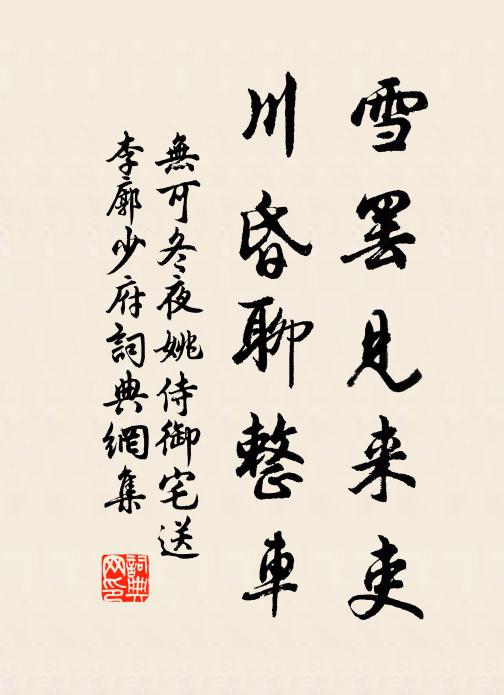 雪罢見来吏
川昏聊整車
無可冬夜姚侍御宅送
李廓少府詞典網集
詞典网印